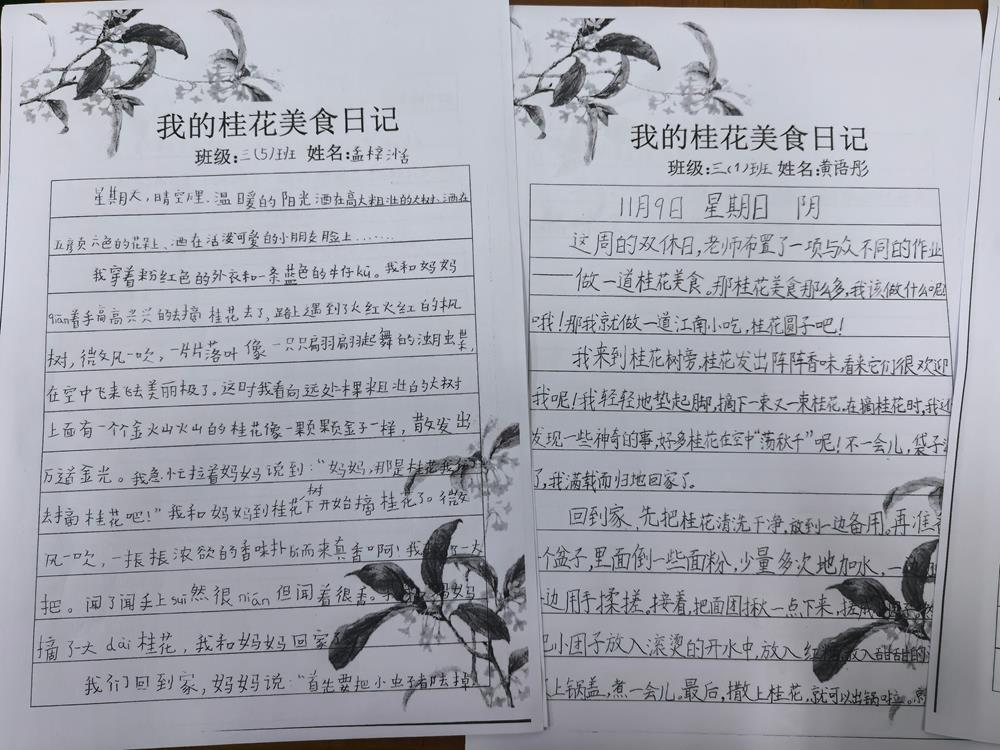 我的桂花美食日记
班级:三(5)班 姓名:孟梓恬
星期天,晴空里、温暖的阳光洒在高大粗壮的大树、洒在
五颜六色的花朵上、洒在活泼可爱的小朋友脸上……
我穿着粉红色的外衣和一条蓝色的牛仔kù。我和妈妈
qiān着手高高兴兴的去摘桂花去了,路上遇到了火红火红的枫
树,微风一吹,一片片落叶像一只只翩翩起舞的蝴蝶,
在空中飞来飞去美丽极了。这时我看向远处一棵粗壮的大树
上面有一个个金火山火山的桂花像一颗颗金子一样,散发出
万道金光。我急忙拉着妈妈说到:“妈妈,那是桂花我们
去摘桂花吧!”我和妈妈到桂花树下开始摘桂花了。微
风一吹,一振振浓欲的香味扑面而来真香啊!我 一大
把。闻了闻手上suī然很nián但闻着很香。 妈妈
摘了一大dài桂花,我和妈妈回家
我们回到家,妈妈说:“首先要把小虫子都去掉
我的桂花美食日记
班级:三(1)班 姓名:黄语彤
11月9日 星期日 阴
这周的双休日,老师布置了一项与众不同的作业
——做一道桂花美食。那桂花美食那么多,我该做什么呢
哦!那我就做一道江南小吃,桂花圆子吧!
我来到桂花树旁,桂花发出阵阵香味,看来它们很欢迎
我呢!我轻轻地垫起脚,摘下一束又一束桂花,在摘桂花时,我还
发现一些神奇的事,好多桂花在空中“荡秋千”呢!不一会儿,袋子
了,我满载而归地回家了。
回到家、先把桂花清洗干净,放到一边备用。再准
个盆子,里面倒一些面粉,少量多次地加水,一
边用手揉搓,接着,把面团揪一点下来,搓成
把小团子放入滚烫的开水中,放入红糖,放入甜甜的
上锅盖,煮一会儿。最后,撒上桂花,就可以出锅啦。